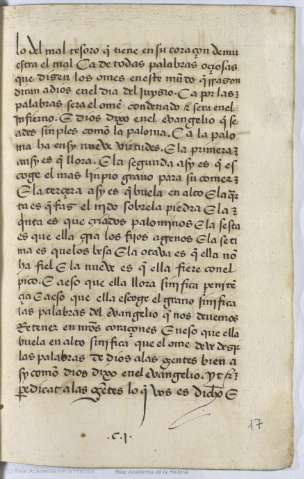 lo del mal tesoro q̃ tiene en su coraçon demu
estra el mal Ca de todas palabras oçiosas
que digen los omes en este mũdo q̃ rragon
diran a dios en el dia del juysio Ca por las
palabras sera el ome condenado sera en el
jnfierno E dios dixo en el evangelio q̃ se
ades sinples como la paloma Ca la palo
ma ha en sy nueve virtudes E la primera
ansy es q̃ llora E la segunda asy es q̃ es
coge el mas linpio grano para su comer
E la terçera asy es q̃ buela en alto E la q̃r
ta es q̃ fas el nido sobre la piedra E la
q̃nta es que criados palominos E la sesta
es que ella cria los fijos agenos E la seti
ma es que los besa E la otava es q̃ ella no
ha fiel E la nueve es q̃ ella fiere con el
pico E a eso que ella llora sinifica penitẽ
çia E a eso que ella escoge el grano sinifica
las palabras del evangelio q̃ nos devemos
Retener en nr̃os coraçones E a eso que ella
buela en alto sinifica que el ome deve desir
las palabras de dios a las gentes bien a
sy como dios dixo en el evangelio
pedicat a las gẽtes lo q̃ vos es dicho E
17
.C.J.
Real Academia de la Historia